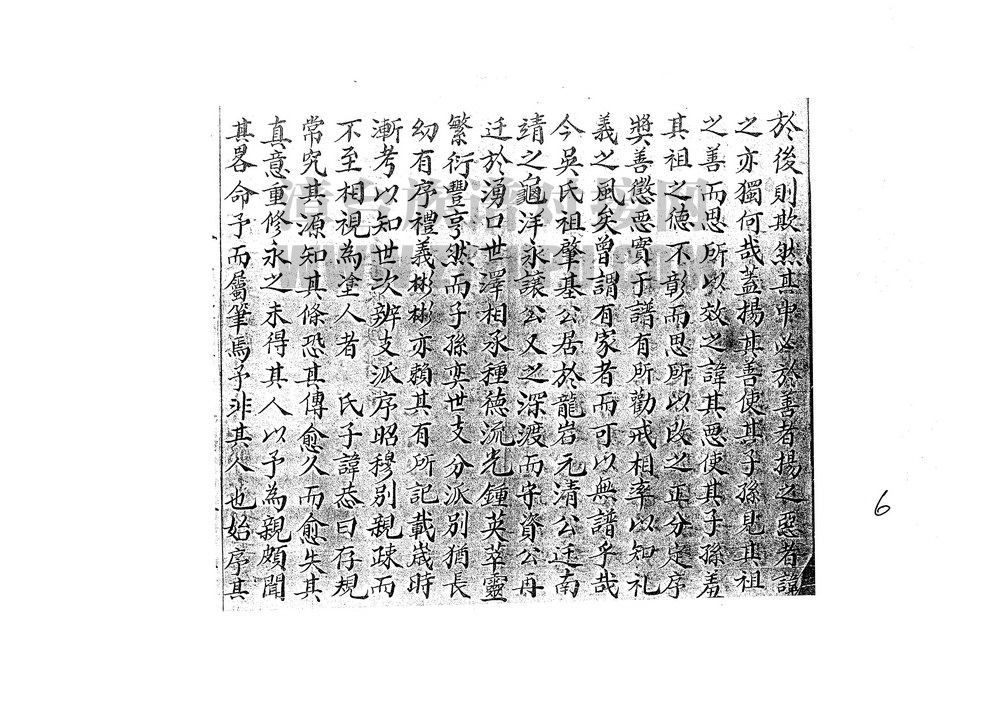 於後則欺然其中必於善者揚之惡者諱
之亦獨何哉蓋揚其善使其子孫見其祖
之善而思所以效之諱其惡使其子孫羞
其祖之德不彰而思所以改之正分定序
獎善懲惡實于譜有所勸戒相率以知礼
義之風矣曾謂有家者而可以無譜乎哉
今吳氏祖肇基公居於龍岩元清公迁南
靖之龜洋永讓公又之深渡而守資公再
迁於湧口世澤相承種德流光鍾英萃靈
繁衍豐亨然而子孫奕世支分派別猶長
幼有序禮義彬彬亦賴其有所記載歲時
漸考以知世次辨支派序昭穆別親疎而
不至相視為塗人者 氏子諱恭曰存規
常究其源知其條恐其傳愈久而愈失其
真意重修永之未得其人以予為親頗聞
其畧命予而屬筆焉予非其人也始序其
6